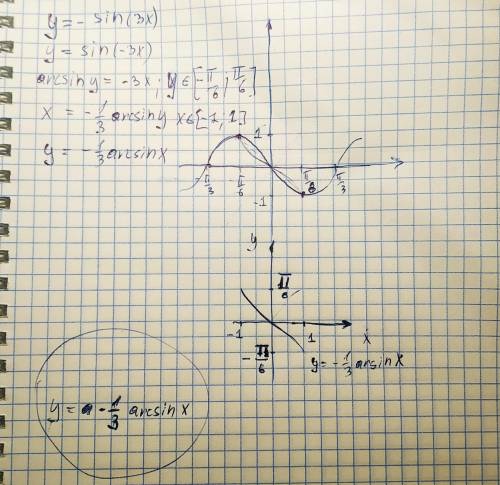 y = - sin(3x)
y = sin(-3x)
arcsin y = -3x; y ∈ [-π/6; π/6]
x = -1/3 arcsin y x ∈ [-1; 1]
y = -1/3 arcsin x
1
-π/3 -π/6 π/6 π/3
-1
y
π/6
-1 1 x
-π/6
y = -1/3 arsin x
y = -1/3 arcsin x